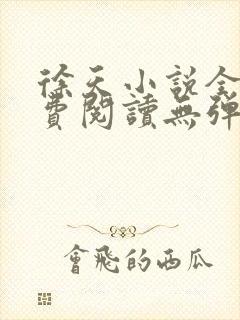 徐天小説全
費閱讀無彈
會飛的西瓜